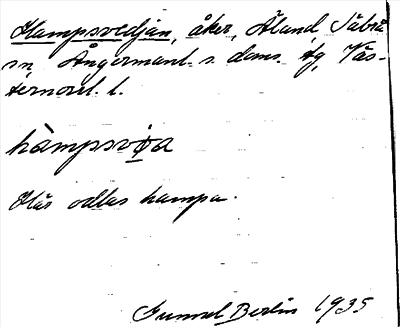 Hampsvedjan, åker, Åland, Säbrå
sn, Ångermanl. s. doms. tg, Väs-
ternorrl. l.
hampsvia
Här odlas hampa.
Gunnel Berlin 1935